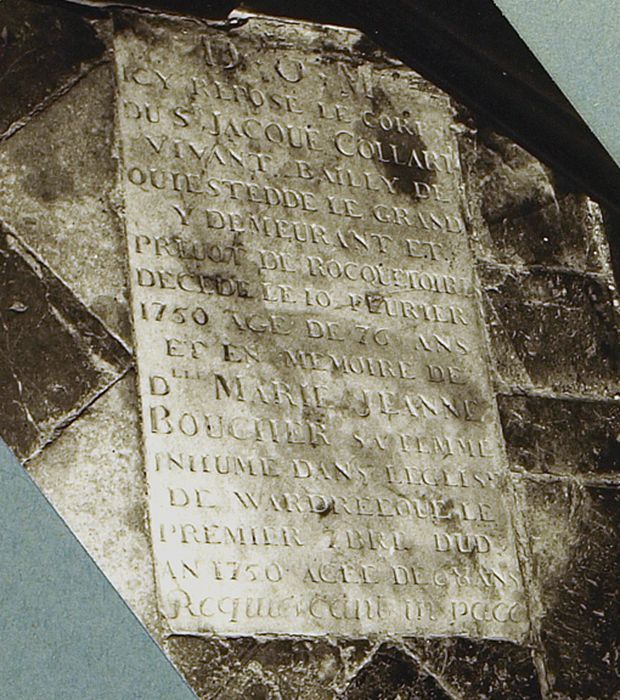 D. O. M
ICY REPOSE LE CORP
DU Sr JACQUE COLLART
VIVANT BAILLY DE
QUIESTEDDE LE GRAND
Y DEMEURANT ET
PREVOT DE ROCQUETOIRE
DECEDE LE 10 FEURIER
1750 AGE DE 76 ANS
ET EN MEMOIRE DE
Dlle MARIE JEANNE
BOUCHER SA FEMME
INHUME DANS LEGLISE
DE WARDRECQUE LE
PREMIER 7BRE DUD
AN 1750 AGEE DE 68 ANS
Requiescant in pace